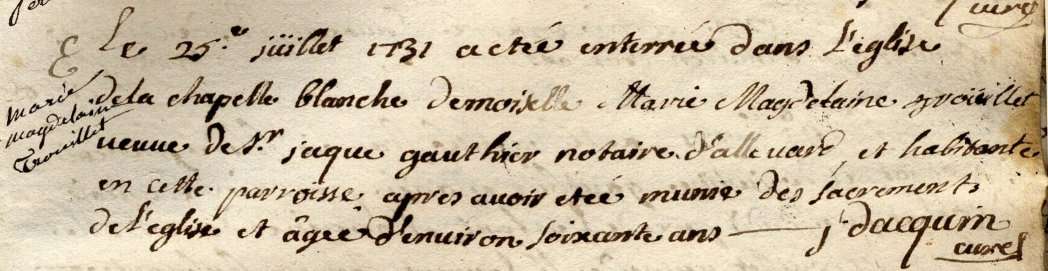 curé
Le 25.e juillet 1731 a eté enterrée dans l'eglise
marie
magdelaine
Trouillet
de la chapelle blanche demoiselle Marie Magdelaine
veuve de Sr. jaque gauthier notaire d'allevard, et habitante
en cette parroisse apres avoir eteé munie des sacrements
de l'eglise et âgée d'environ soixante ans —— j dacquin
curé